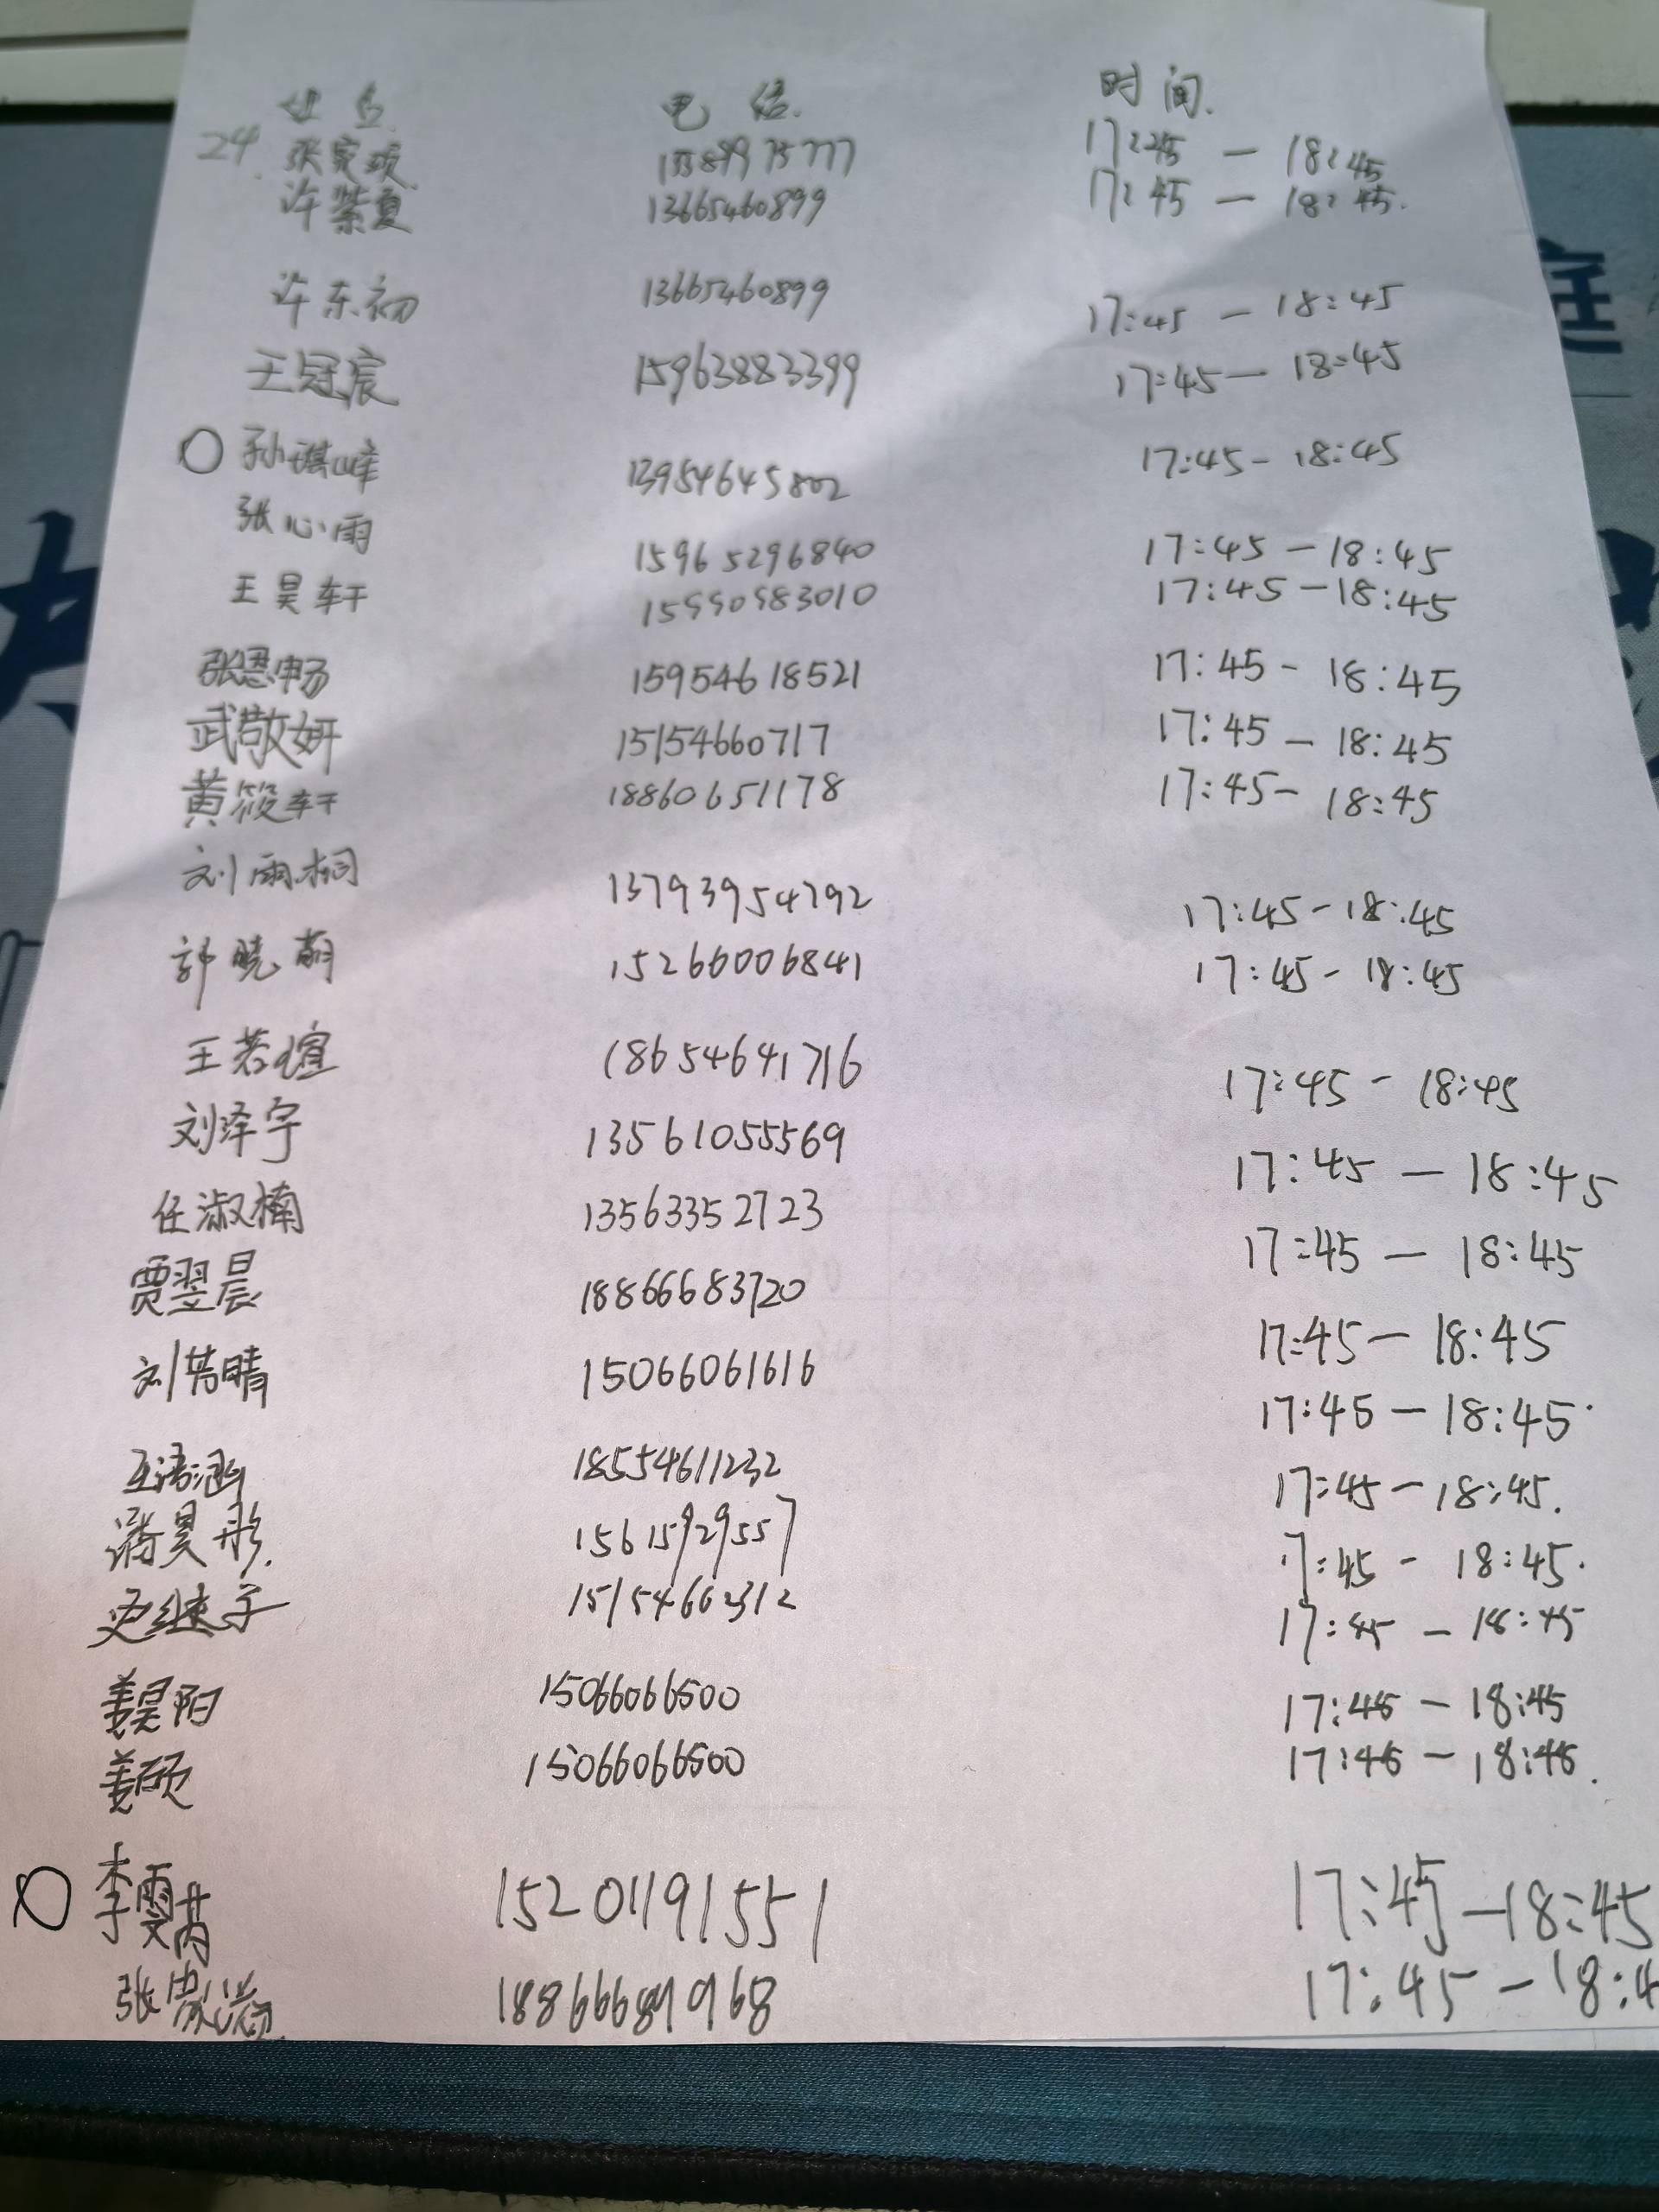 姓名 电话 时间
24 张家 17:45 — 18:45
许紫夏 13665460899 17:45 — 18:45
许东初 13665460899 17:45 — 18:45
王冠宸 15963883399 17:45 — 18:45
孙琪峰 13954645802 17:45 - 18:45
张心雨 15965296840 17:45 — 18:45
王昊轩 17:45 — 18:45
张恩畅 15954618521 17:45 - 18:45
武敬妍 15154660717 17:45 — 18:45
黄筱轩 18860651178 17:45 - 18:45
刘雨桐 13793954792 17:45 - 18:45
郭晓萌 15266006841 17:45 - 18:45
王若瑄 18654641716 17:45 - 18:45
刘泽宇 13561055569 17:45 — 18:45
任淑楠 13563352723 17:45 — 18:45
贾翌晨 18866683720 17:45 — 18:45
刘芳晴 15066061616 17:45 — 18:45
王涵 18554611232 17:45 — 18:45.
潘昊彤. 15615929557 17:45 - 18:45.
史继子 15154662312 17:45 — 18:45
姜昊阳 15066066500 17:45 — 18:45
姜硕 15066066500 17:45 — 18:45.
李雯芮 15201191551 17:45 — 18:45
张 17:45 — 18:4